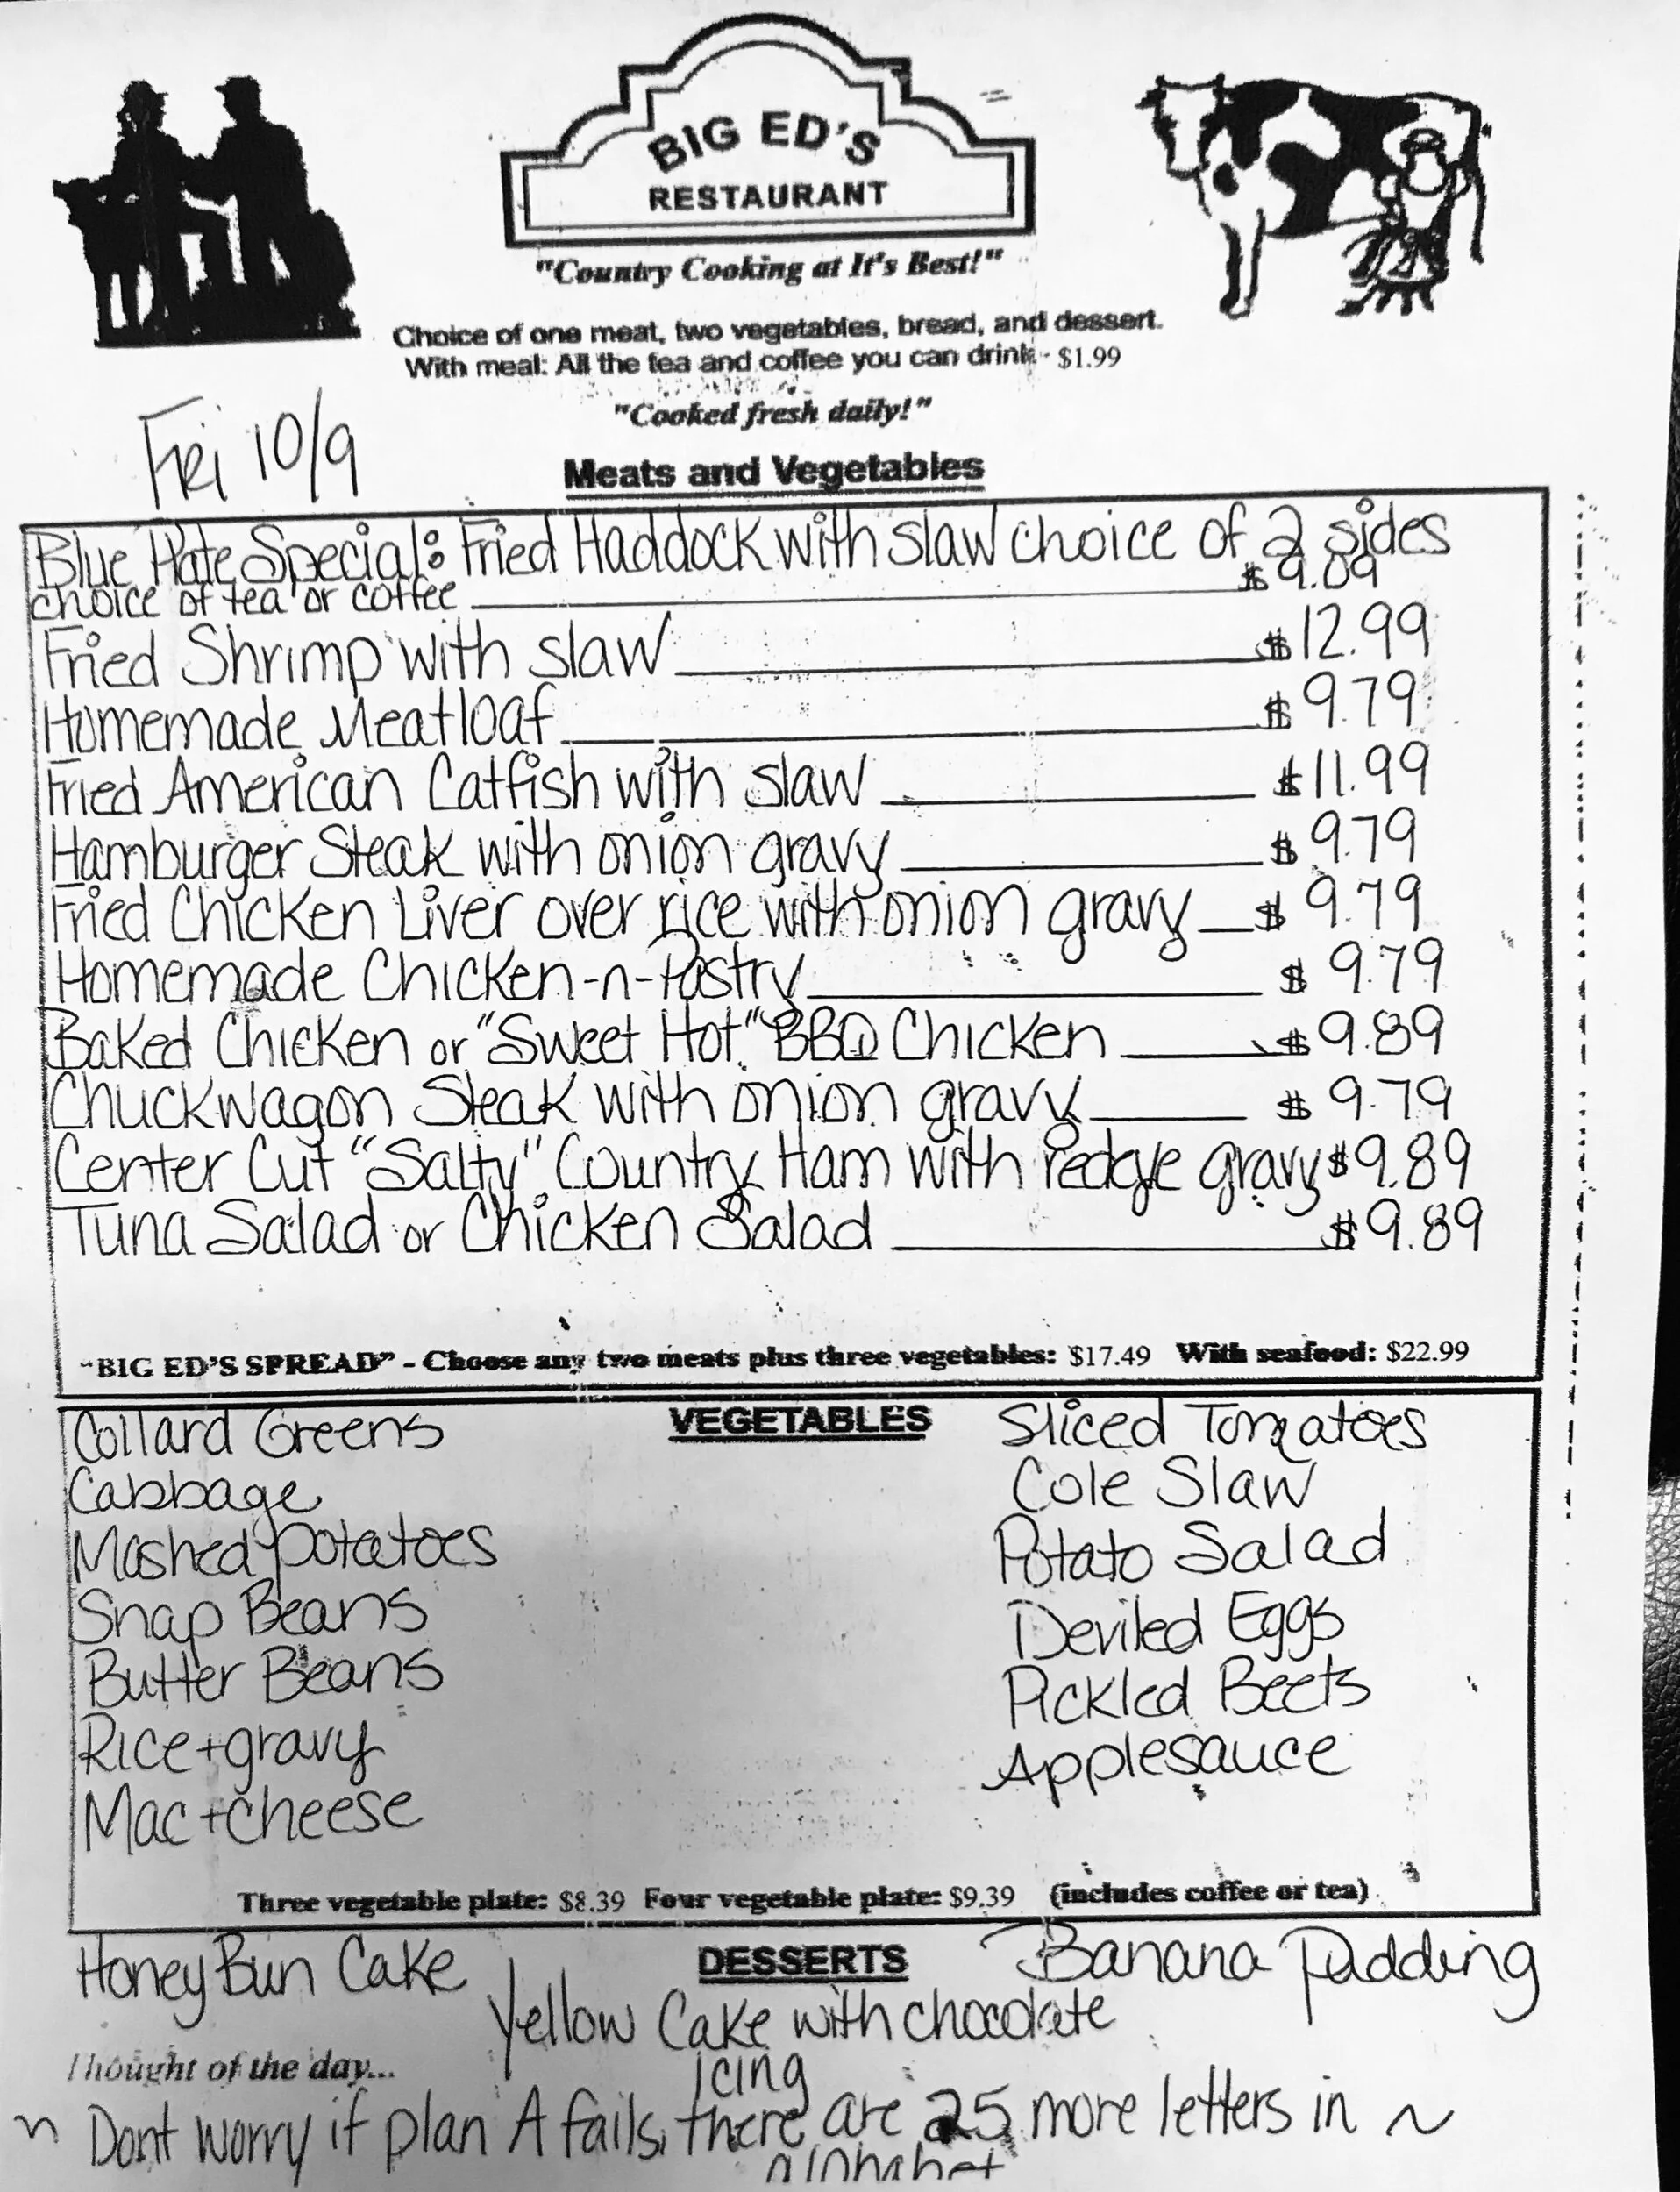 BIG ED'S
RESTAURANT
"Country Cooking at It's Best!"
Choice of one meat, two vegetables, bread, and dessert.
With meal: All the tea and coffee you can drink - $1.99
"Cooked fresh daily!"
Fri 10/9
Meats and Vegetables
Blue Plate Special: Fried Haddock with slaw choice of 2 sides
choice of tea or coffee $9.09
Fried Shrimp with slaw $12.99
Homemade Meatloaf $9.79
Fried American Catfish with slaw $11.99
Hamburger Steak with onion gravy $9.79
Fried Chicken Liver over rice with onion gravy $9.79
Homemade Chicken-n-Pastry $9.79
Baked Chicken or "Sweet Hot" BBQ Chicken $9.89
Chuckwagon Steak with onion gravy $9.79
Center Cut "Salty" Country Ham with redeye gravy $9.89
Tuna Salad or Chicken Salad $9.89
"BIG ED'S SPREAD" - Choose any two meats plus three vegetables: $17.49 With seafood: $22.99
VEGETABLES
Collard Greens
Cabbage
Mashed potatoes
Snap Beans
Butter Beans
Rice + gravy
Mac + cheese
Sliced Tomatoes
Cole Slaw
Potato Salad
Deviled Eggs
Pickled Beets
Applesauce
Three vegetable plate: $8.39 Four vegetable plate: $9.39 (includes coffee or tea)
DESSERTS
Honey Bun Cake
Banana Pudding
Yellow Cake with chocolate
icing
Thought of the day...
~ Dont worry if plan A fails, there are 25 more letters in ~
alphabet